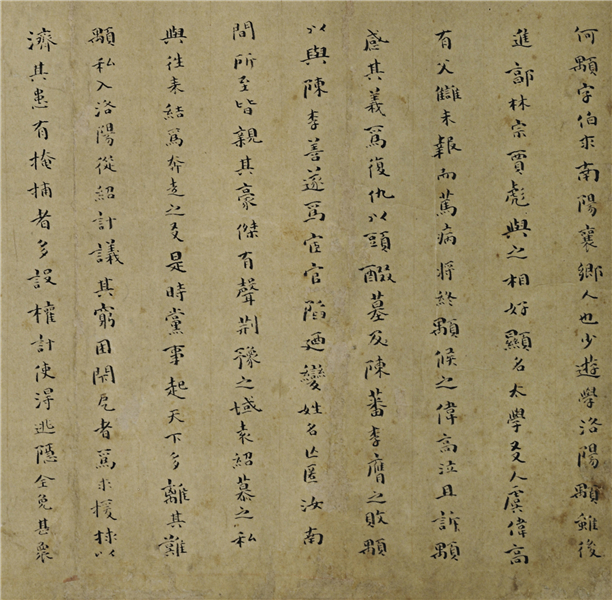 何顒字伯求南陽襄鄉人也少遊學洛陽顒雖後
進郭林宗賈彪與之相好顯名太學友人虞偉高
有父讎未報而篤病將終顒候之偉高泣且訴顒
感其義爲復仇以頭醊墓及陳蕃李膺之敗顒
以與陳李善遂爲宦官陷迺變姓名亡匿汝南
間所至皆親其豪傑有聲荊豫之域袁紹慕之私
與往來結爲奔走之友是時黨事起天下多離其難
顒私入洛陽從紹計議其窮困閉戹者爲求援捄以
濟其患有掩捕者多設權計使得逃隱全免甚衆